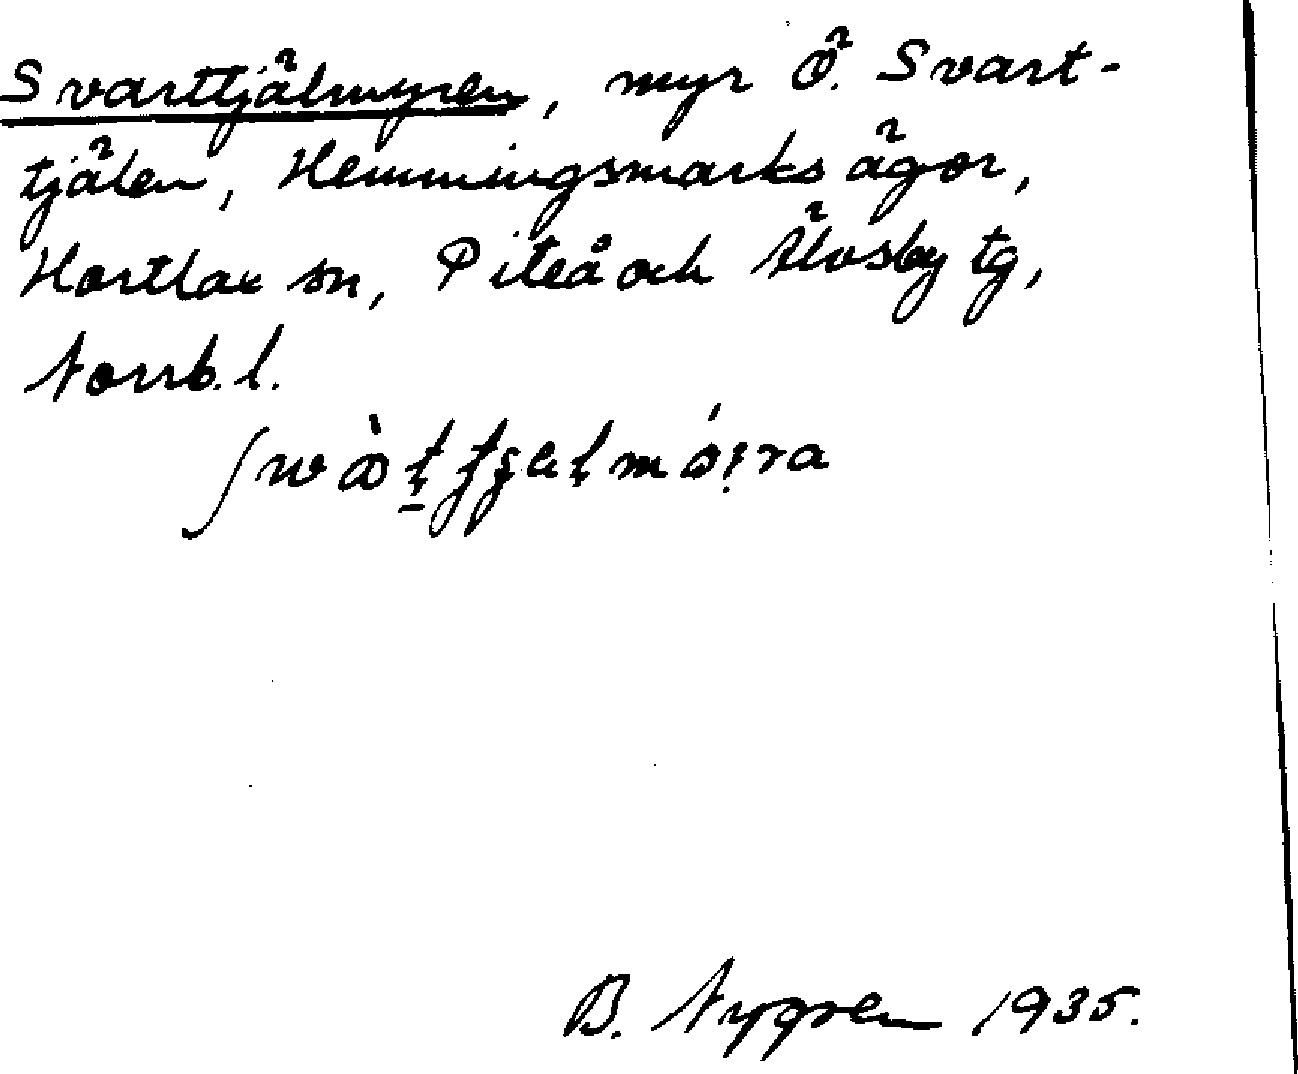 Svarttjälmyren, myr Ö. Svart-
tjälen, Hemmingsmarks ägor,
Hortlax sn, Piteå och Älvsby tg,
Norrb. l.
B. Nygren 1935.